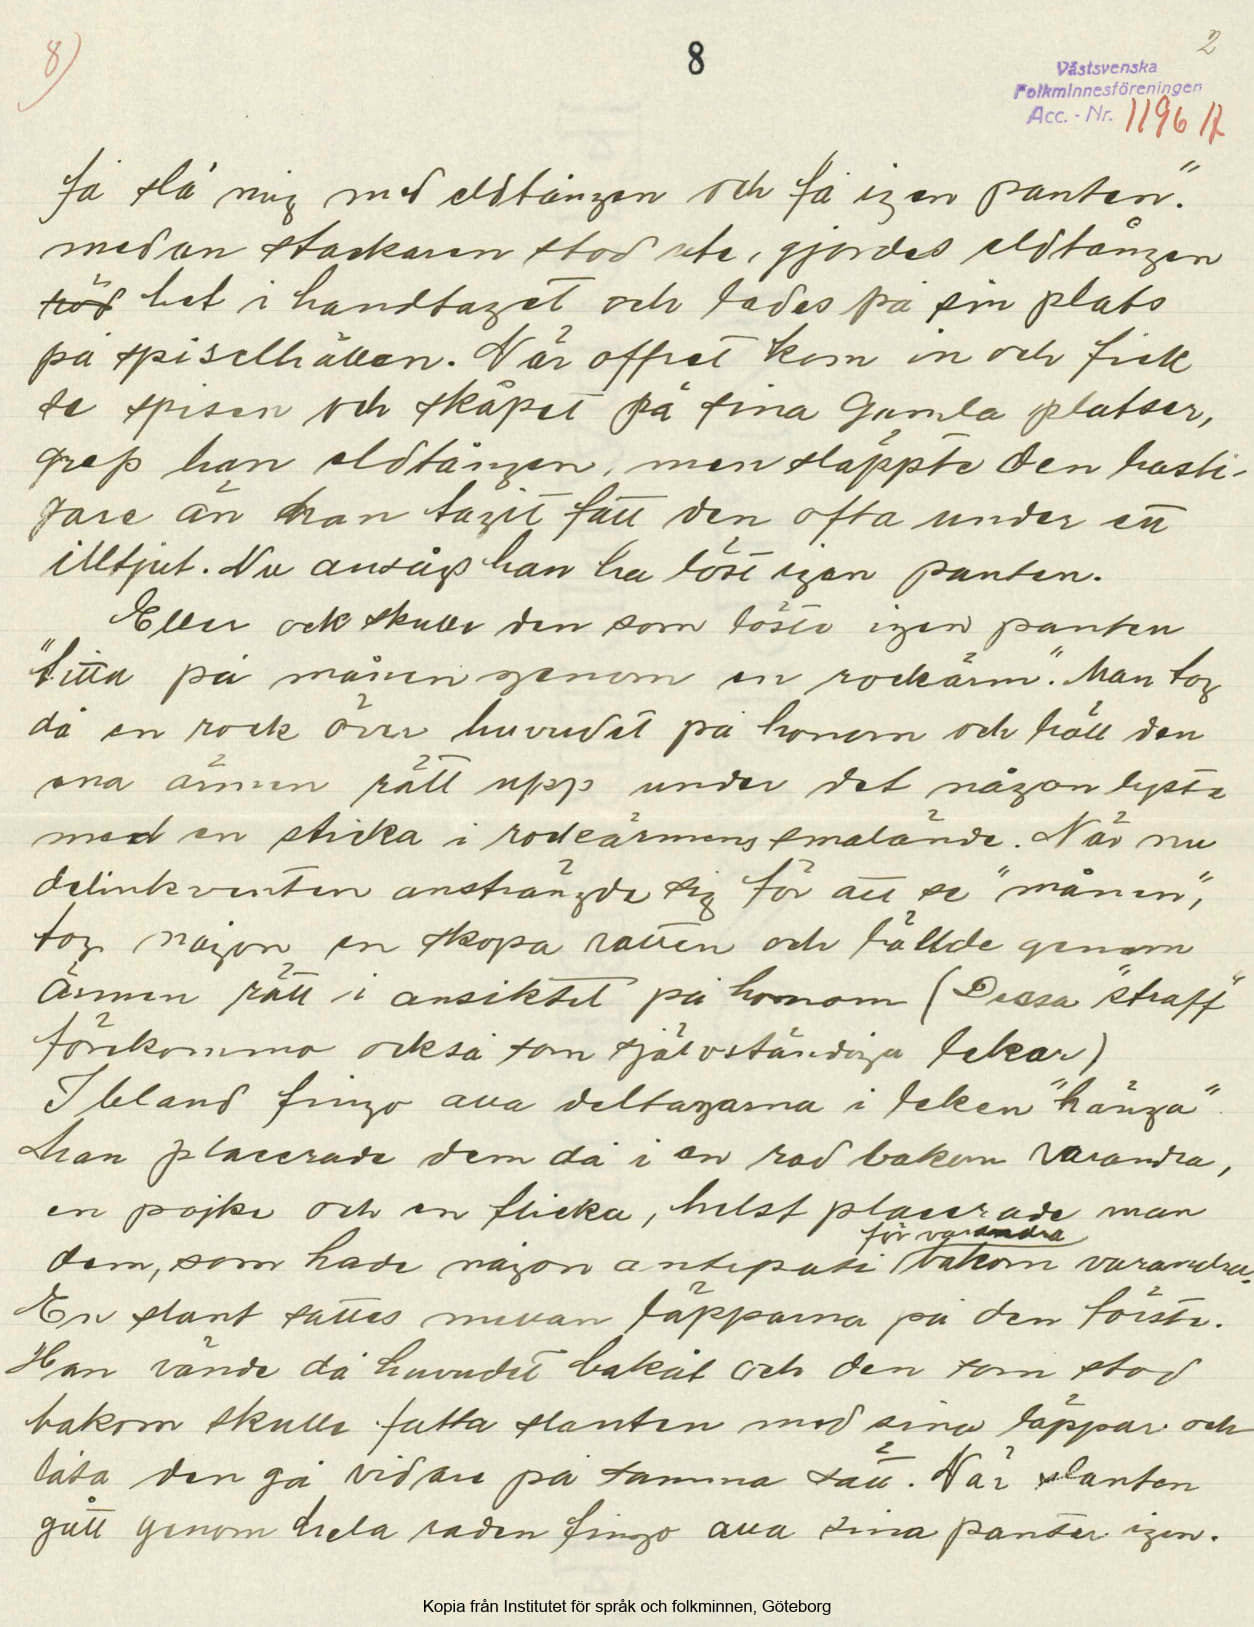 8)
8
2
Västsvenska
Folkminnesföreningen
Acc. - Nr. 1196
få slå mig med eldtången och få igen panten."
medan stackaren stod ute, gjordes eldtången
röd het i handtaget och lades på sin plats
på spiselhällen. När offret kom in och fick
se spisen och skåpet på sina gamla platser,
grep han eldtången, men släppte den hasti-
gare än han tagit fatt den ofta under ett
illtjut. Nu ansågs han ha löst igen panten.
Eller ock skulle den som löste igen panten
"titta på månen genom en rockärm". Man tog
då en rock över huvudet på honom och höll den
ena ärmen rätt upp under det någon lyste
med en sticka i rockärmens smalände. När nu
delinkventen ansträngde sig för att se "månen",
tog någon en skopa vatten och hällde genom
ärmen rätt i ansiktet på honom (Dessa "straff"
förekommo också som självständiga lekar)
Ibland fingo alla deltagarna i leken "hänga"
Man placerade dem då i en rad bakom varandra,
en pojke och en flicka, helst placerade man
för varandra
dem, som hade någon antipati bakom varandra.
En slant sattes mellan läpparna på den förste.
Han vände då huvudet bakåt och den som stod
bakom skulle fatta slanten med sina läppar och
låta den gå vidare på samma sätt. När slanten
gått genom hela raden fingo alla sina panter igen.
Kopia från Institutet för språk och folkminnen, Göteborg